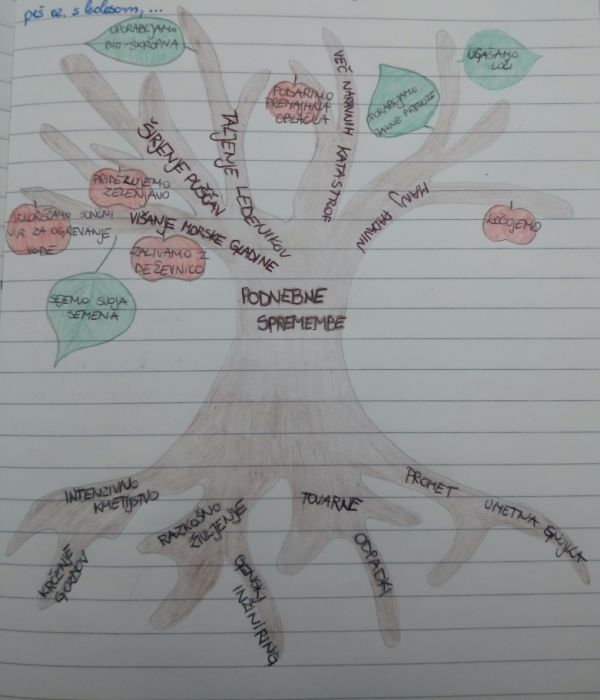 peš oz. s kolesom, ...
UPORABLJAMO
BIO-ŠKROPIVA
UGAŠAMO
LUČI
PODARIMO
PREMAJHNA
OBLAČILA
UPORABLJAMO
JAVNE PREVOZE
VEČ NARAVNIH KATASTROF
TALJENJE LEDENIKOV
ŠIRJENJE PUŠČAV
MANJ PADAVIN
PRIDELUJEMO
ZELENJAVO
VIŠANJE MORSKE GLADINE
IZKORIŠČAMO SONČNI
VIR ZA OGREVANJE
VODE
LOČUJEMO
ZALIVAMO Z
DEŽEVNICO
SEJEMO SVOJA
SEMENA
PODNEBNE
SPREMEMBE
INTENZIVNO
KMETIJSTVO
RAZKOŠNO
ŽIVLJENJE
TOVARNE
PROMET
UMETNA GNOJILA
KRČENJE
GOZDOV
GENSKI
INŽINIRING
ODPADKI